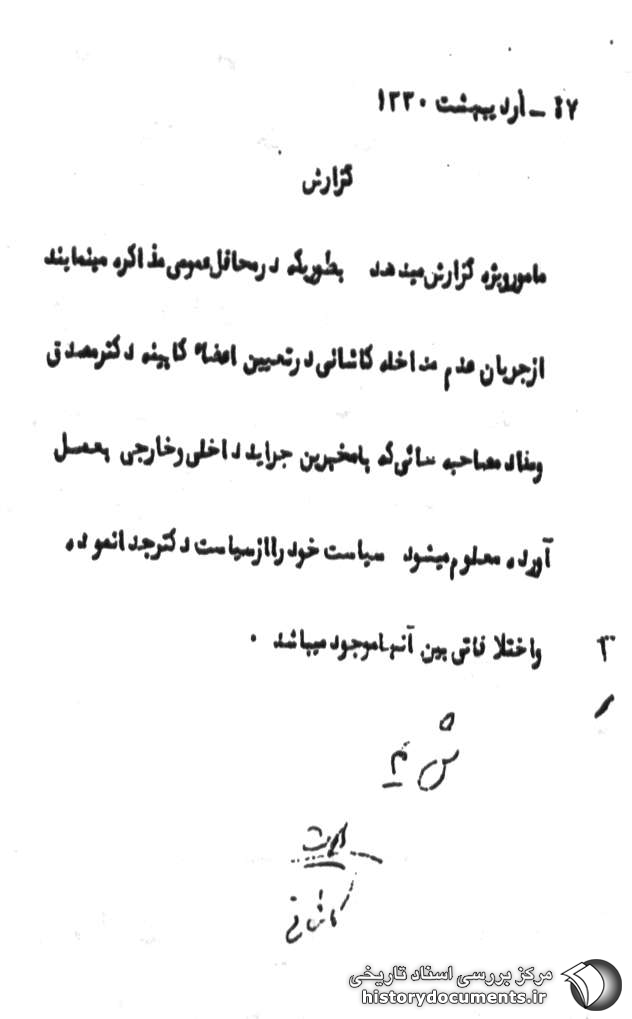 ۱۷ - اردیبهشت ۱۳۳۰
گزارش
مامور ویژه گزارش میدهد بطوریکه در محافل عمومی مذاکره مینمایند
از جریان عدم مداخله کاشانی در تعیین اعضاء کابینه دکتر مصدق
ومفاد مصاحبه هائی که با مخبرین جراید داخلی و خارجی بعمل
آورده معلوم میشود سیاست خود را از سیاست دکتر جدا نموده
واختلافاتی بین آنها موجود میباشد .
کاشانی
مرکز بررسی اسناد تاریخی
historydocuments.ir